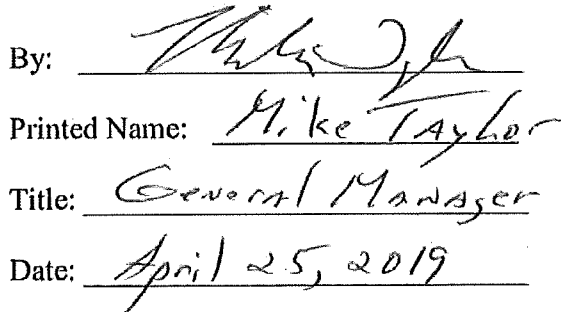 By:
Printed Name: Mike Taylor
Title: General Manager
Date: April 25, 2019